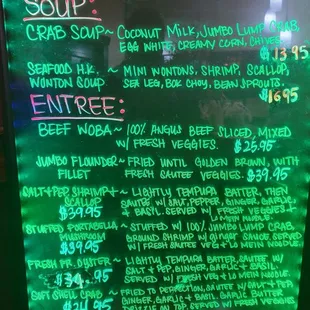 SOUP:
CRAB SOUP~ COCONUT MILK, JUMBO LUMP CRAB,
EGG WHITE, CREAMY CORN, CHIVES
$13.95
SEAFOOD H.K. ~ MINI WONTONS, SHRIMP, SCALLOP,
WONTON SOUP SEA LEG, BOK CHOY, BEAN SPROUTS.
$16.95
ENTREE:
BEEF WOBA ~ 100% ANGUS BEEF SLICED, MIXED
W/ FRESH VEGGIES. $25.95
JUMBO FLOUNDER~ FRIED UNTIL GOLDEN BROWN, WITH
FILLET FRESH SAUTEE VEGGIES. $39.95
SALT+PEP SHRIMP+ ~ LIGHTLY TEMPURA BATTER, THEN
SCALLOP SAUTEE W/ SALT, PEPPER, GINGER, GARLIC,
$39.95 & BASIL. SERVED W/ FRESH VEGGIES +
LO MEIN NOODLE.
STUFFED PORTABELLA ~ STUFFED W/ 100% JUMBO LUMP CRAB,
MUSHROOM GROUND SHRIMP W/ SAUCE SERVED
$39.95 W/ FRESH SAUTEE VEG + LO MEIN NOODLE.
FRESH FR. OYSTER ~ LIGHTLY TEMPURA BATTER, SAUTEE W/
SALT + PEP, GINGER, GARLIC + BASIL.
$34.95 SERVED W/ FRESH VEG + LO MEIN NOODLE.
SOFT SHELL CRAB ~ FRIED TO PERFECTION, SAUTEE W/ SALT + PEP
GINGER, GARLIC + BASIL. GARLIC BUTTER
$24.95 DRIZZLE ON TOP SERVED W/ FRESH VEGGIES